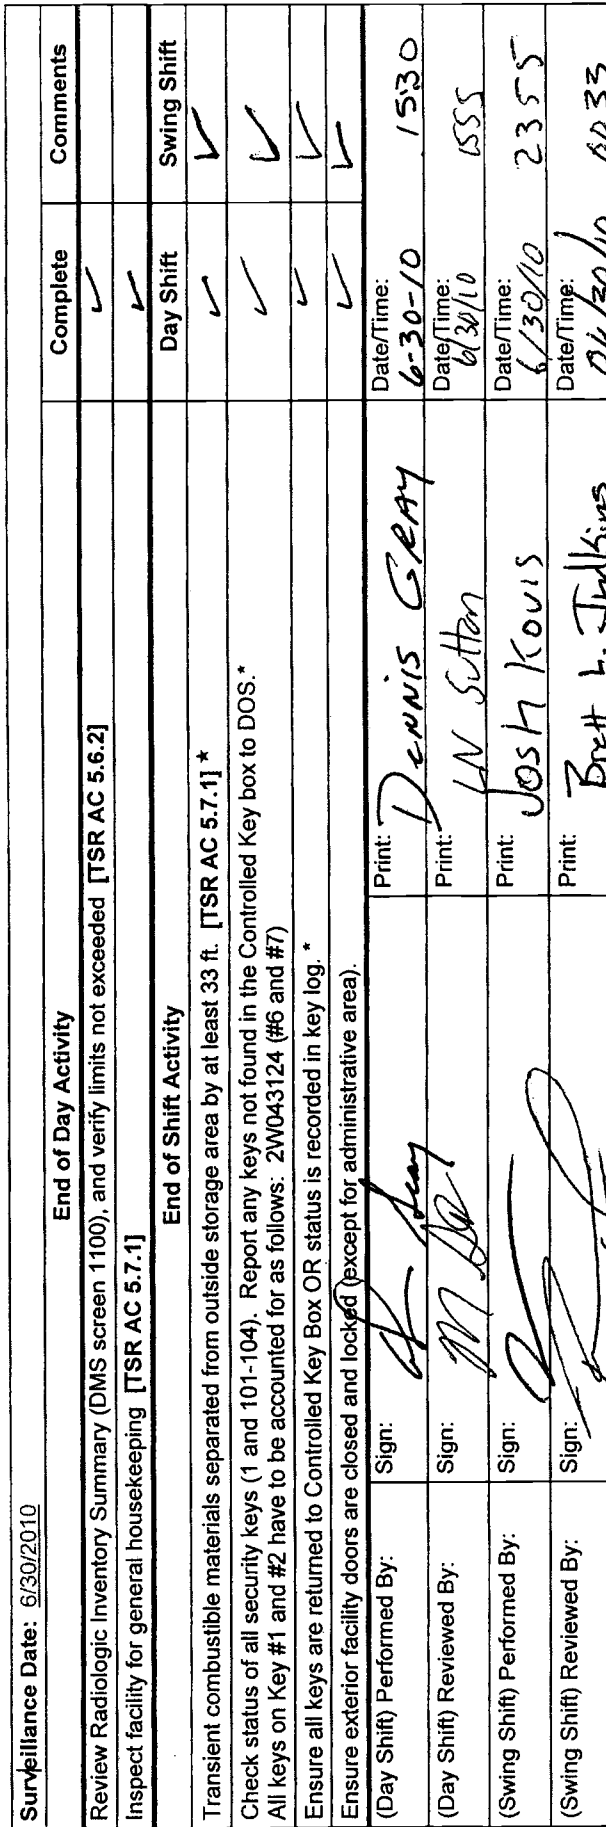 Surveillance Date: 6/30/2010
End of Day Activity Complete Comments
Review Radiologic Inventory Summary (DMS screen 1100), and verify limits not exceeded [TSR AC 5.6.2] ✓
Inspect facility for general housekeeping [TSR AC 5.7.1] ✓
End of Shift Activity Day Shift Swing Shift
Transient combustible materials separated from outside storage area by at least 33 ft. [TSR AC 5.7.1] * ✓ ✓
Check status of all security keys (1 and 101-104). Report any keys not found in the Controlled Key box to DOS.* ✓ ✓
All keys on Key #1 and #2 have to be accounted for as follows: 2W043124 (#6 and #7)
Ensure all keys are returned to Controlled Key Box OR status is recorded in key log. * ✓ ✓
Ensure exterior facility doors are closed and locked (except for administrative area). ✓ ✓
(Day Shift) Performed By: Sign: Print: Dennis Gray Date/Time: 6-30-10 1530
(Day Shift) Reviewed By: Sign: Print: Sutton Date/Time: 6/30/10 1555
(Swing Shift) Performed By: Sign: Print: Josh Kovis Date/Time: 6/30/10 2355
(Swing Shift) Reviewed By: Sign: Print: Brett L. Judkins Date/Time: 06/30/10 0033